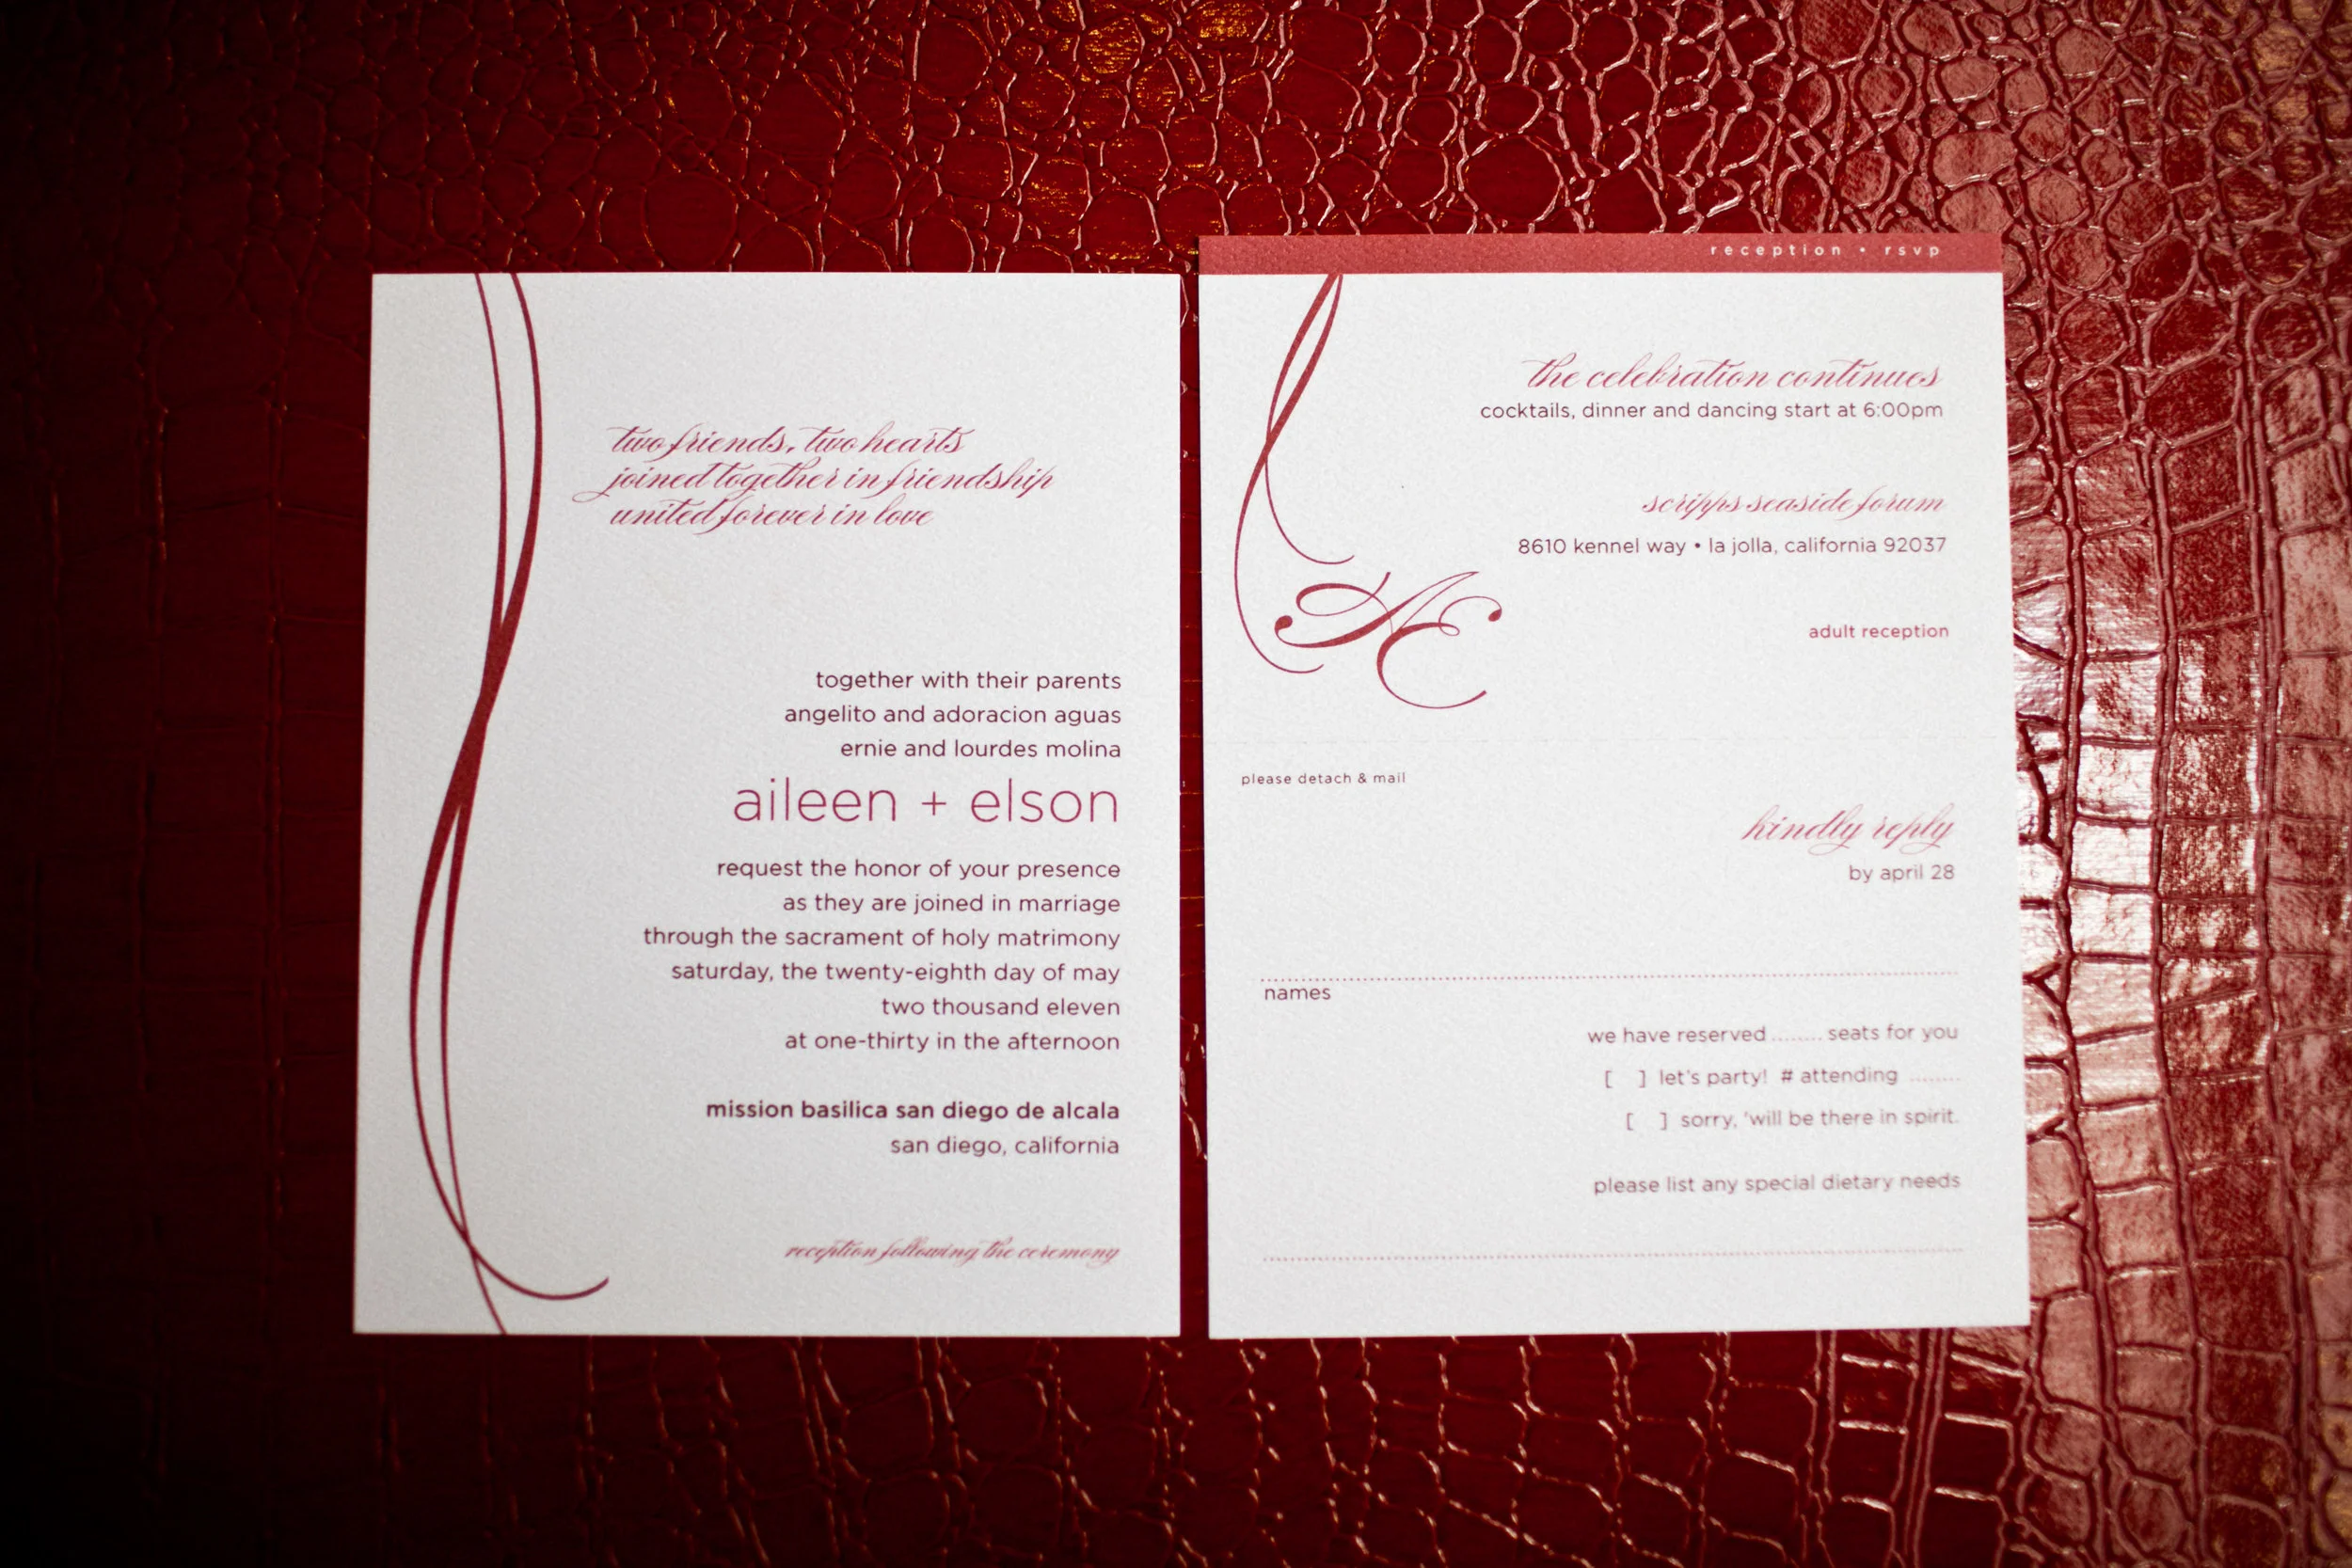 two friends, two hearts
joined together in friendship
united forever in love
together with their parents
angelito and adoracion aguas
ernie and lourdes molina
aileen + elson
request the honor of your presence
as they are joined in marriage
through the sacrament of holy matrimony
saturday, the twenty-eighth day of may
two thousand eleven
at one-thirty in the afternoon
mission basilica san diego de alcala
san diego, california
reception following the ceremony
reception • rsvp
the celebration continues
cocktails, dinner and dancing start at 6:00pm
scripps seaside forum
8610 kennel way • la jolla, california 92037
AE
adult reception
please detach & mail
kindly reply
by april 28
names
we have reserved ........ seats for you
[ ] let's party! # attending ........
[ ] sorry, 'will be there in spirit.
please list any special dietary needs